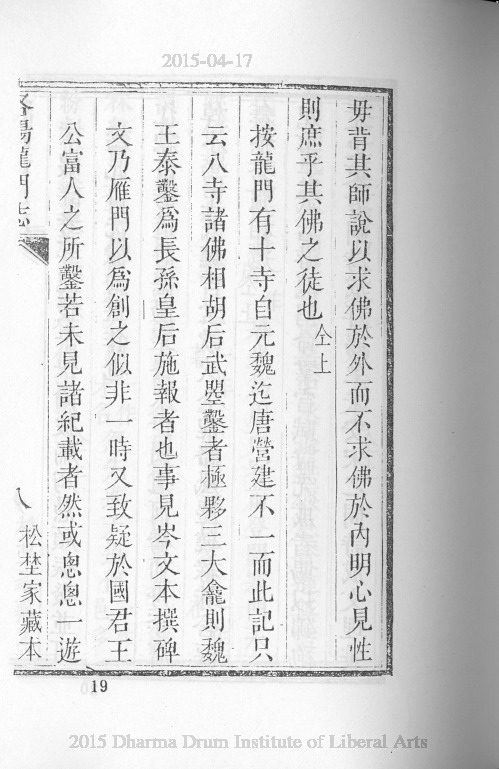 2015-04-17
毋背其師說以求佛於外而不求佛於內明心見性
則庶乎其佛之徒也仝上
按龍門有十寺自元魏迄唐營建不一而此記只
云八寺諸佛相胡后武曌鑿者極夥三大龕則魏
王泰鑿爲長孫皇后施報者也事見岑文本撰碑
文乃雁門以爲創之似非一時又致疑於國君王
公富人之所鑿若未見諸紀載者然或悤悤一遊
洛陽龍門志
八
松埜家藏本
19
2015 Dharma Drum Institute of Liberal Arts